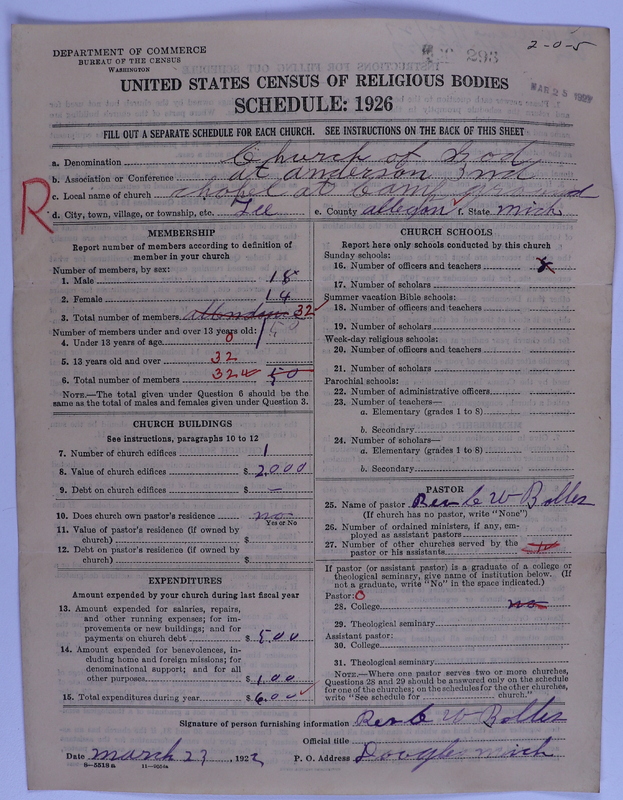 DEPARTMENT OF COMMERCE
BUREAU OF THE CENSUS
WASHINGTON
293
2-0-5
MAR 25 1927
UNITED STATES CENSUS OF RELIGIOUS BODIES
SCHEDULE: 1926
FILL OUT A SEPARATE SCHEDULE FOR EACH CHURCH. SEE INSTRUCTIONS ON THE BACK OF THIS SHEET
a. Denomination Church of God
b. Association or Conference at anderson Ind
c. Local name of church chapel at Camp ground
R
d. City, town, village, or township, etc. Lee e. County allegan f. State Mich
MEMBERSHIP
Report number of members according to definition of member in your church
Number of members, by sex:
1. Male 18
2. Female 14
3. Total number of members 32
Number of members under and over 13 years old:
4. Under 13 years of age 0
5. 13 years old and over 32
6. Total number of members 32 50
NOTE.—The total given under Question 6 should be
same as the total of males and females given under Question 3.
CHURCH BUILDINGS
See instructions, paragraphs 10 to 12
7. Number of church edifices 1
8. Value of church edifices $ 2000
9. Debt on church edifices $ —
10. Does church own pastor's residence no
Yes or No
11. Value of pastor's residence (if owned by
church) $
12. Debt on pastor's residence (if owned by
church) $
EXPENDITURES
Amount expended by your church during last fiscal year
13. Amount expended for salaries, repairs,
and other running expenses; for im-
provements or new buildings; and for
payments on church debt $ 500
14. Amount for benevolences, in-
cluding home and foreign missions; for
denominational support; and for all
other purposes $ 100
15. Total expenditures during year $ 600
CHURCH SCHOOLS
Report here only schools conducted by this church
Sunday schools:
16. Number of officers and teachers
17. Number of scholars
Summer vacation Bible schools:
18. Number of officers and teachers
19. Number of scholars
Week-day religious schools:
20. Number of officers and teachers
21. Number of scholars
Parochial schools:
22. Number of administrative officers
23. Number of teachers—
a. Elementary (grades 1 to 8)
b. Secondary
24. Number of scholars—
a. Elementary (grades 1 to 8)
b. Secondary
PASTOR
25. Name of pastor Rev C W Bolles
(If church has no pastor, write "None")
26. Number of ordained ministers, if any, em-
ployed as assistant pastors
27. Number of other churches served by the
pastor or his assistants
If pastor (or assistant pastor) is a graduate of a college or
theological seminary, give name of institution below. (If
not a graduate, write "No" in the space indicated.)
Pastor: 0
28. College no
29. Theological seminary
Assistant pastor:
30. College
31. Theological seminary
NOTE.—Where one pastor serves two or more churches,
Questions 28 and 29 should be answered only on the schedule
for one of the churches; on the schedules for the other churches,
write "See schedule for church."
Signature of person furnishing information Rev C W Bolles
Official title
Date March 23, 1927 P. O. Address Douglas Mich
8—5518a